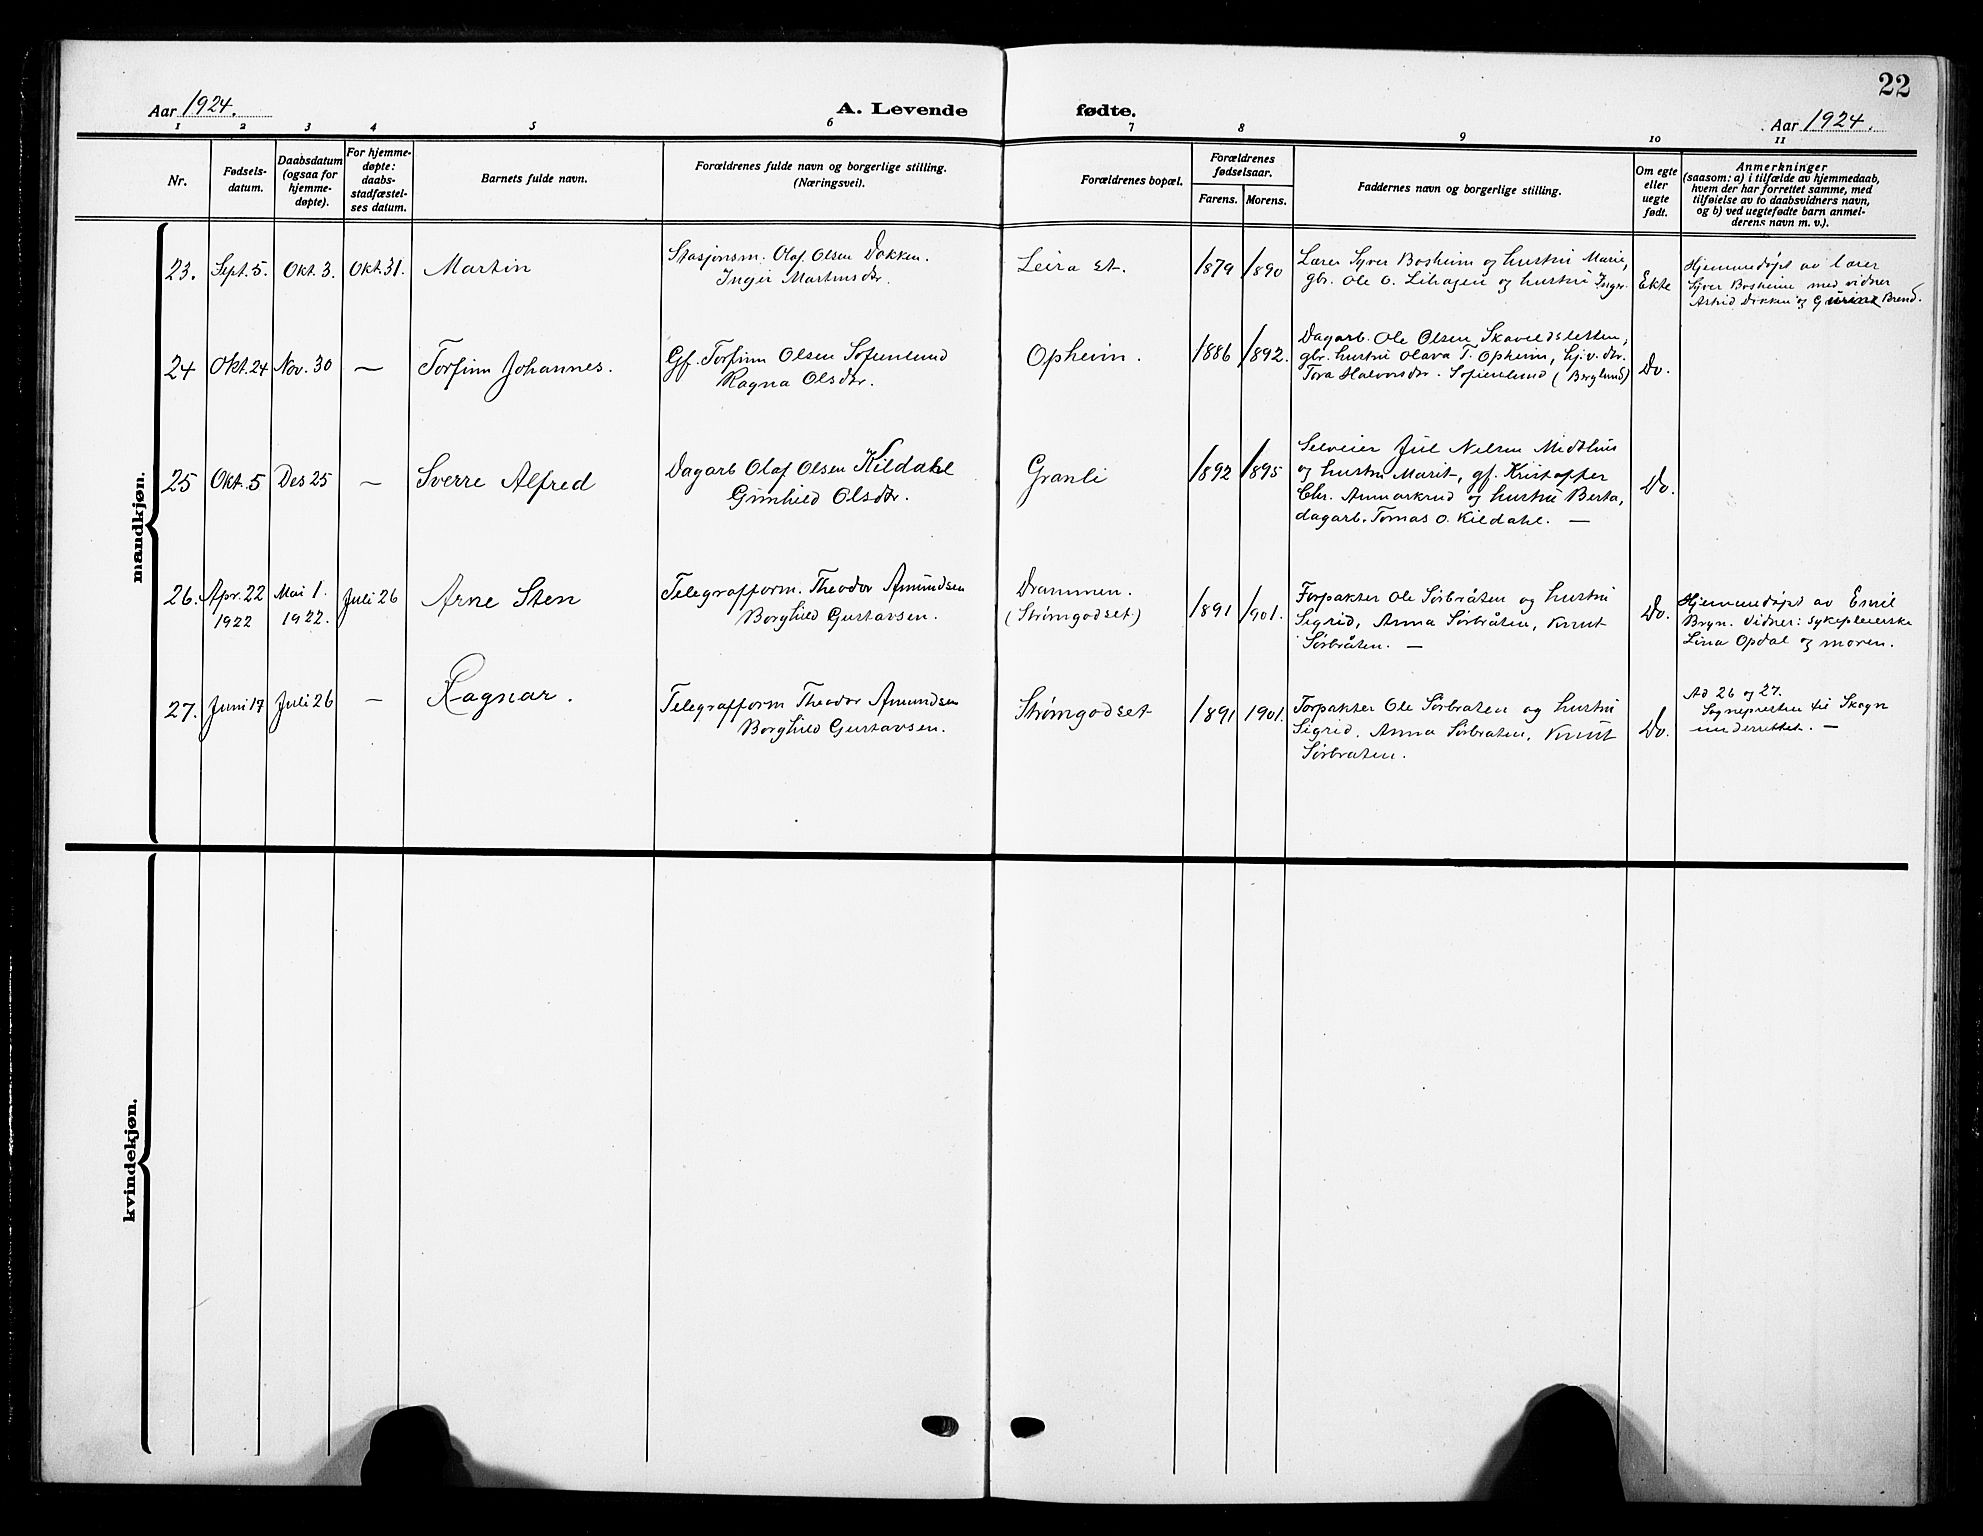 22
Aar 1924.
A. Levende fødte.
Aar 1924.
1 2 3 4 5 6 7 8 9 10 11
Nr.
Fødsels-
datum.
Daabsdatum
(ogsaa for
hjemme-
døpte).
For hjemme-
døpte:
daabs-
stadfæstel-
ses datum.
Barnets fulde navn.
Forældrenes fulde navn og borgerlige stilling.
(Næringsvei).
Forældrenes bopæl.
Forældrenes
fødselsaar.
Farens. Morens.
Faddernes navn og borgerlige stilling.
Om egte
eller
uegte
født.
Anmerkninger
(saasom: a) i tilfælde av hjemmedaab,
hvem der har forrettet samme, med
tilføielse av to daabsvidners navn,
og b) ved uegtefødte barn anmel-
derens navn m. v.).
mandkjøn.
23. Sept. 5. Okt. 3. Okt. 31. Martin
Stasjonsm. Olaf Olsen Dokken.
Inger Martinsdtr.
Leira st.
1879 1890
Lærer Syver Bosheim og hustru Marie,
gbr. Ole O. Lihagen og hustru Inger.
Ekte
Hjemmedøpt av lærer
Syver Bosheim med vidner
Astrid Dokken og Gurine Brend.
24 Okt. 24 Nov. 30 — Torfinn Johannes.
Gf. Torfinn Olsen Sofienlund
Ragna Olsdtr.
Opheim.
1886 1892.
Dagarb. Ole Olsen
gbr. hustru Olava T. Opheim, hj.v. dtr.
Tora Halvorsdtr. Sofienlund (Berglund)
Do.
25 Okt. 5 Des 25 — Sverre Alfred
Dagarb Olaf Olsen Kildahl
Gunhild Olsdtr.
Granli
1892 1895
Selveier Jul Nilsen Midthus
og hustru Marit, gf. Kristoffer
Chr. Aamarkrud og hustru Berta,
dagarb. Tomas O. Kildahl. —
Do.
26. Apr. 22 1922 Mai 1. 1922. Juli 26 Arne Sten
Telegrafform. Theodor Amundsen
Borghild Gustavsen.
Drammen.
(Strømgodset)
1891 1901.
Forpakter Ole Sørbråten og hustru
Sigrid, Anna Sørbråten, Knut
Sørbråten. —
Do.
Hjemmedøpt av Emil
Bryn. Vidner: sykepleierske
Lina Opdal og moren.
27. Juni 17 Juli 26 — Ragnar.
Telegrafform Theodor Amundsen
Borghild Gustavsen.
Strømgodset
1891 1901.
Forpakter Ole Sørbraten og hustru
Sigrid, Anna Sørbraten, Knut
Sørbraten.
Do.
Ad 26 og 27.
Sognepresten til Skogn
underrettet. —
kvindekjøn.